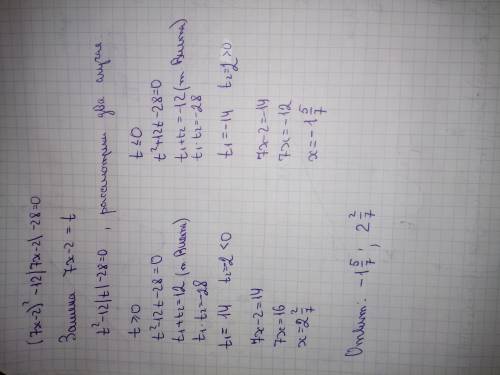 (7x-2)² -12|7x-2| -28=0
Замена 7x-2 = t
t²-12|t|-28=0, рассмотрим два случая
t≥0
t²-12t-28=0
t₁+t₂=12 (т Виета)
t₁·t₂=-28
t₁= 14 t₂=-2<0
7x-2=14
7x=16
x=2 2/7
t≤0
t²+12t-28=0
t₁+t₂=-12 (т Виета)
t₁·t₂=-28
t₁=-14 t₂=2>0
7x-2=-14
7x=-12
x=-1 5/7
Ответ: -1 5/7; 2 2/7